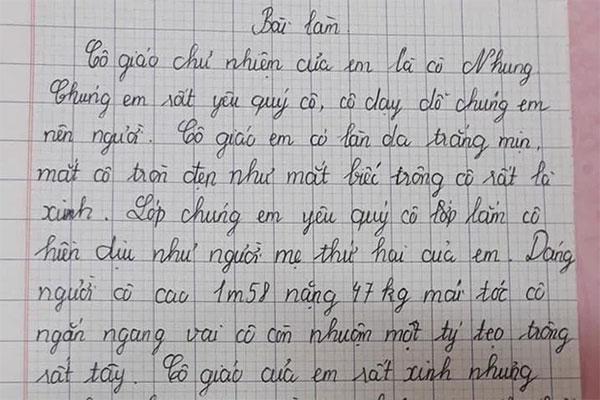 Bài làm
Cô giáo chư nhiệm của em là cô Nhung
Chúng em rất yêu quý cô, cô dạy dỗ chúng em
nên người. Cô giáo em có làn da trắng mịn,
mắt cô tròn đẹp như mắt biếc trông cô rất là
xinh. Lớp chúng em yêu quý cô lắm cô
hiền dịu như người mẹ thứ hai của em. Dáng
người cô cao 1m58 nặng 47 kg mái tóc cô
ngắn ngang vai cô còn nhuộm một tý tẹo trông
rất tây. Cô giáo của em rất xinh nhưng